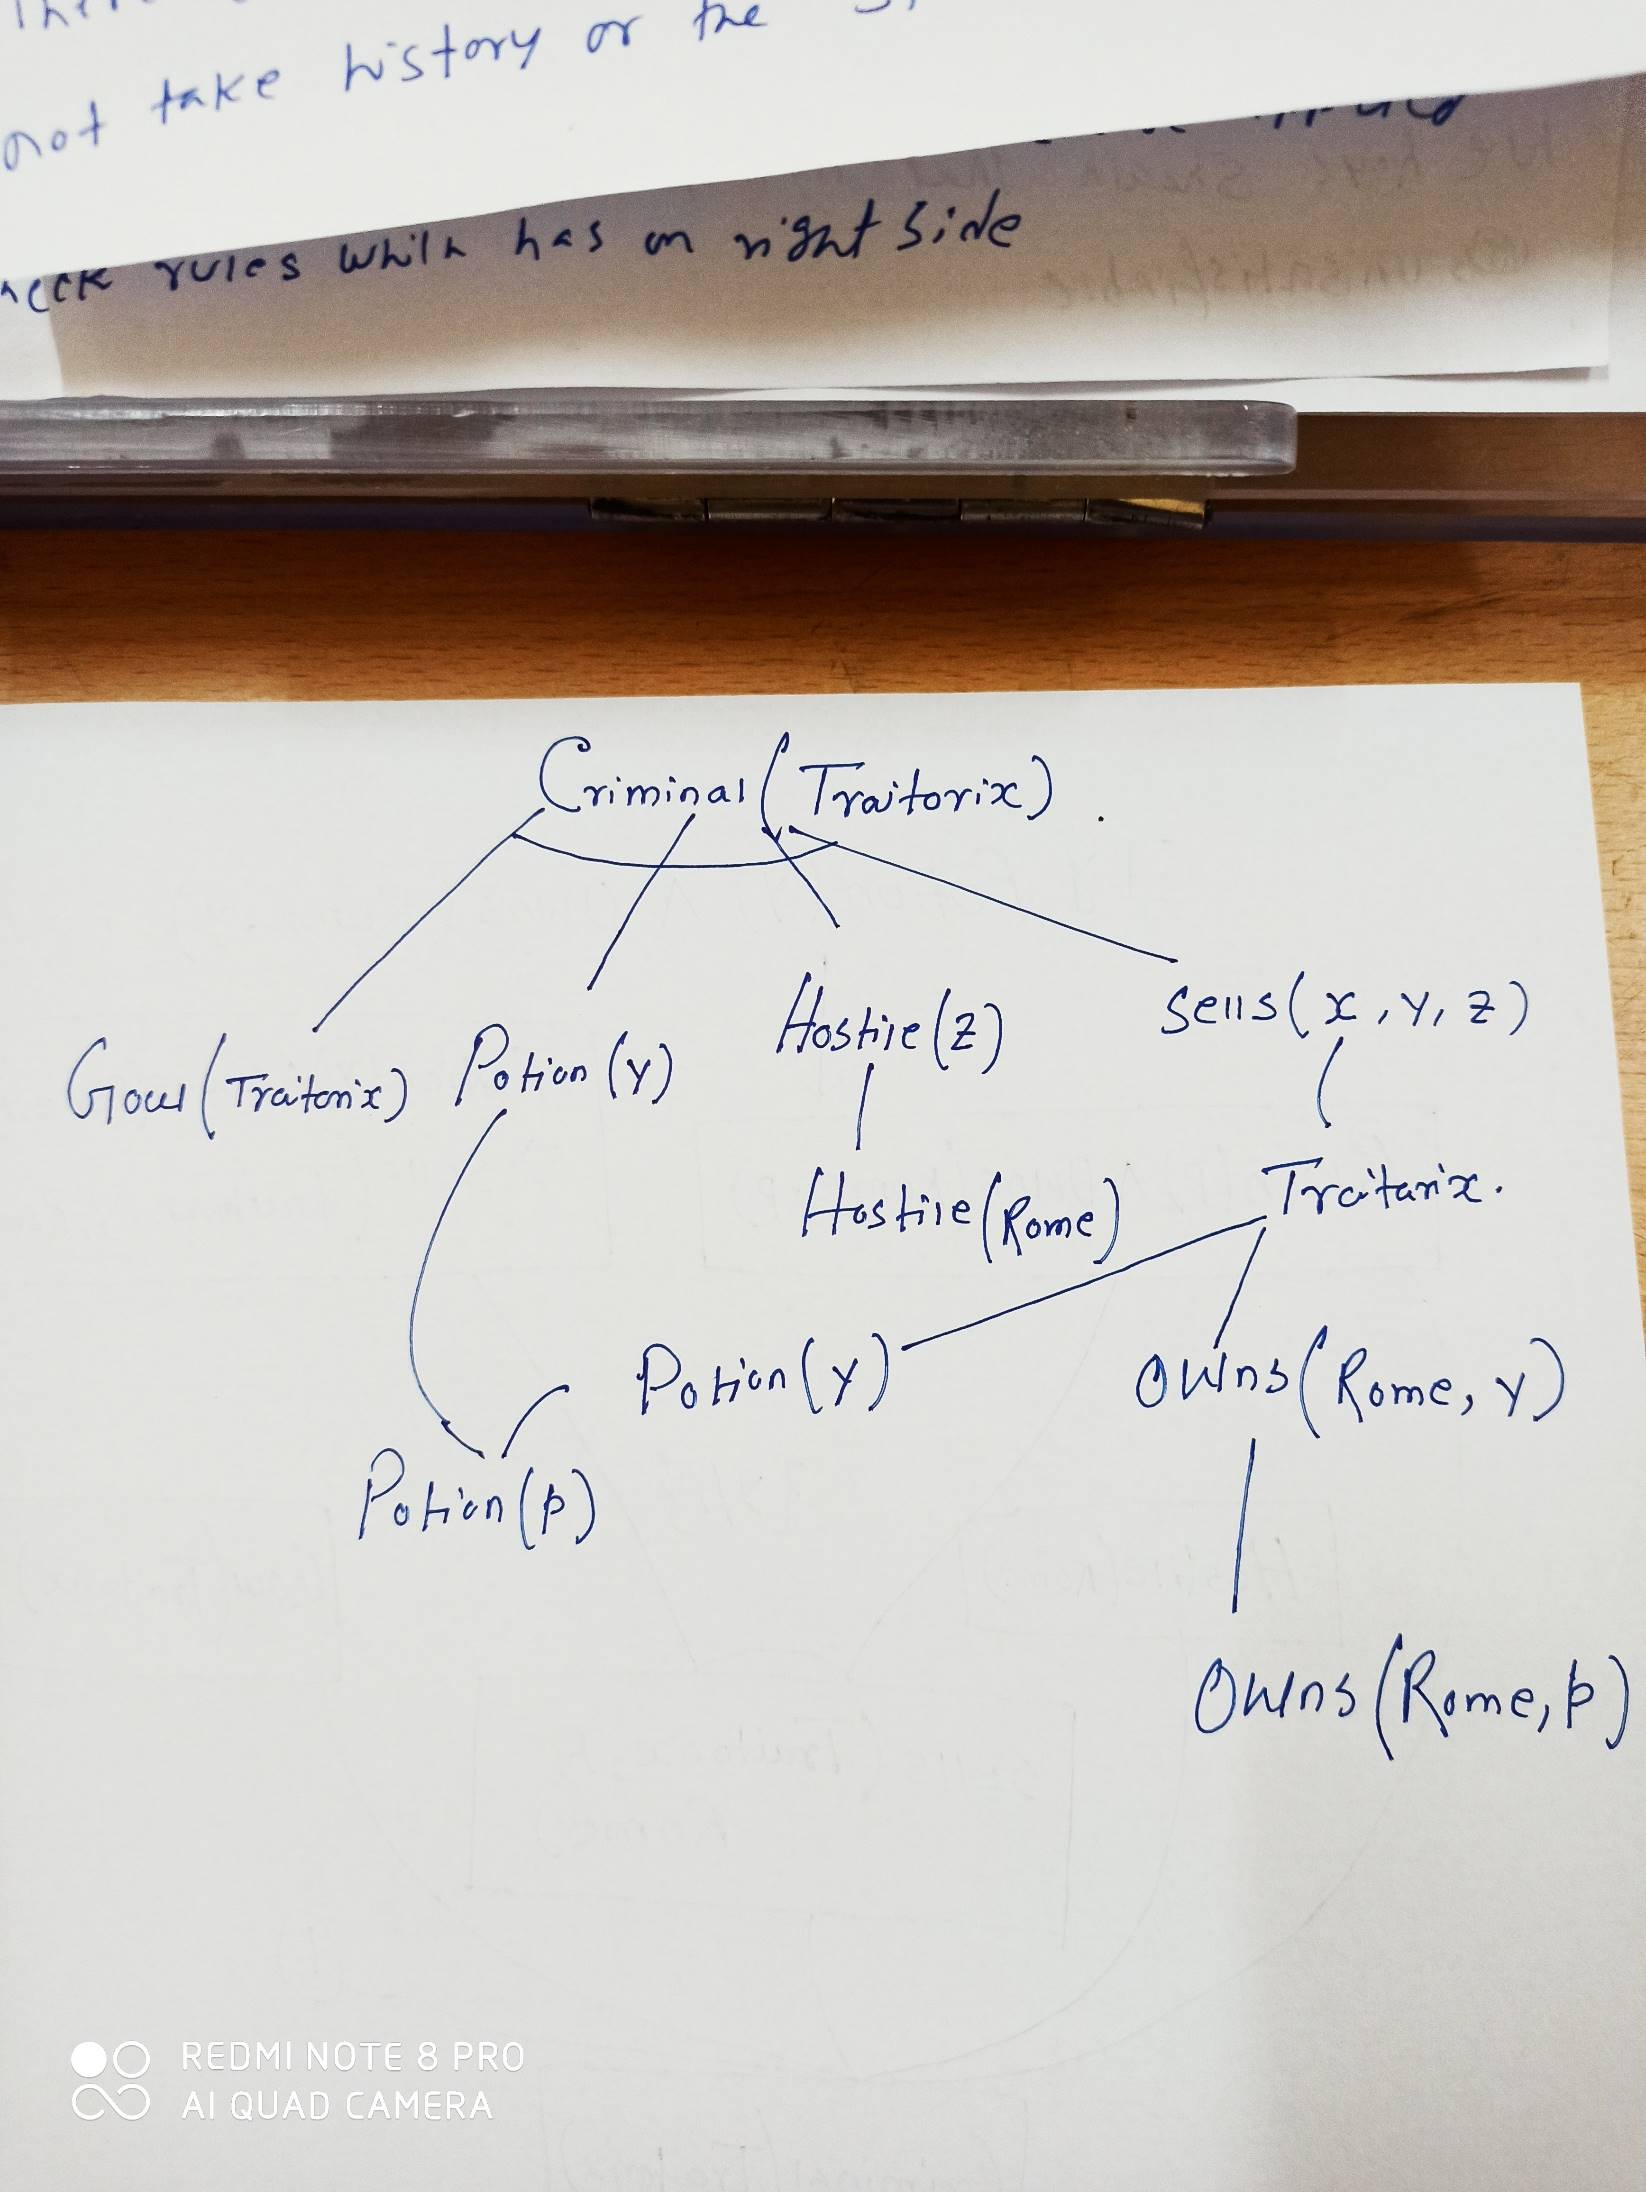 not take history or the
rules which has on right side
Criminal (Traitorix) .
Gaul (Traitorix) Potion (y) Hostile (z) Sells (x, y, z)
Hostile (Rome) Traitorix.
Potion (y) Owns (Rome, y)
Potion (p)
Owns (Rome, p)
REDMI NOTE 8 PRO
AI QUAD CAMERA